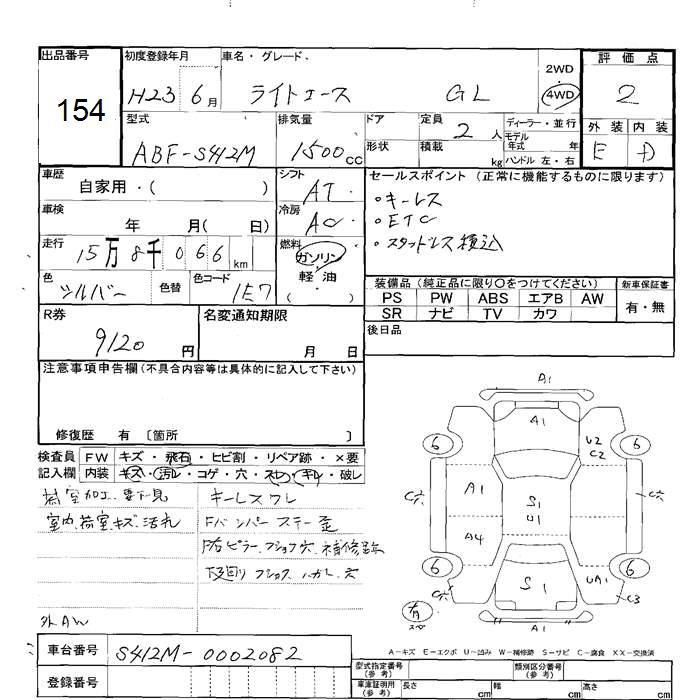 出品番号 初度登録年月 車名・グレード 2WD 評価点
154 H23 6月 ライトエース GL 4WD 2
型式 排気量 ドア 定員 ディーラー・並行 外装 内装
ABF-S412M 1500cc 形状 2人 積載 kg モデル年式 年 ハンドル 左・右 E D
車歴 自家用・( ) シフト AT セールスポイント (正常に機能するものに限ります)
車検 年 月( 日) 冷房 AC ・キーレス
・ETC
走行 15万8千066km 燃料 ガソリン 軽油 ( ) ・スタッドレス積込
色 シルバー 色替 色コード 1E7 装備品 (純正品に限り○をつけてください) 新車保証書
PS PW ABS エアB AW 有・無
SR ナビ TV カワ
R券 9120円 名変通知期限 月 日 後日品
注意事項申告欄 (不具合内容等は具体的に記入して下さい)
修復歴 有 〔箇所 〕
検査員 FW キズ・飛石・ヒビ割・リペア跡・×要
記入欄 内装 キズ・汚レ・コゲ・穴・スレ・キレ・破レ
荷室加工、要下見 キーレスワレ
室内、荷室キズ、汚れ Fバンパーステー歪
補修跡
下廻り サビ ハガレ 穴
外AW
A1
A1
6 U2 C2 6
C穴 A1 S1 U1 C穴
A4
6 S1 6
C穴 UA1 C3
スペ A1
A-キズ E-エクボ U-凹み W-補修跡 S-サビ C-腐食 XX-交換済
車台番号 S412M-0002082
登録番号
型式指定番号 (参考) 類別区分番号 (参考)
車庫証明用 (参考) 長さ cm 幅 cm 高さ cm